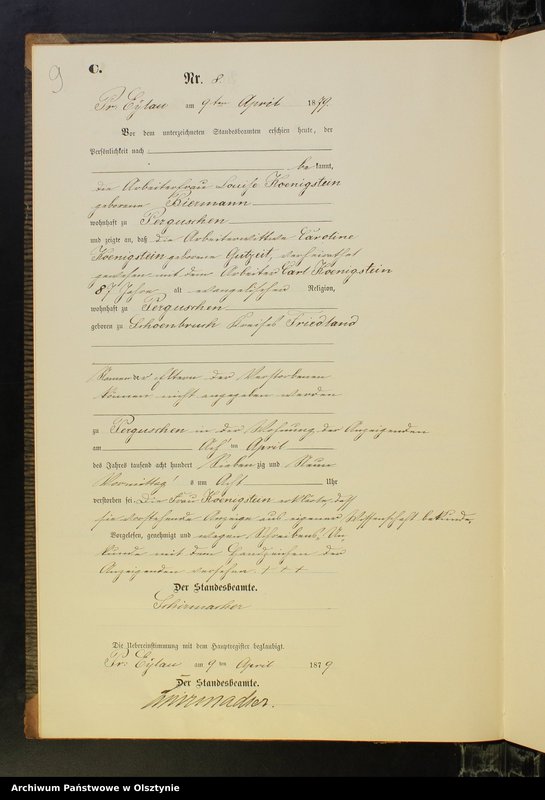 9
C.
Nr. 8.
Pr. Eylau am 9ten April 1879.
Vor dem unterzeichneten Standesbeamten erschien heute, der
Persönlichkeit nach
be kannt,
die Arbeiterfrau Louise Koenigstein
geborene Biermann
wohnhaft zu Perguschen
und zeigte an, daß die Arbeiterwittwe Caroline
Koenigstein geborene Gutzeit, verheirathet
gewesen mit dem Arbeiter Carl Koenigstein
87 Jahre alt evangelischer Religion,
wohnhaft zu Perguschen
geboren zu Schoenbruch Kreises Friedland
Namen der Eltern der Verstorbenen
können nicht angegeben werden
zu Perguschen in der Wohnung der Anzeigenden
am Acht ten April
des Jahres tausend acht hundert Sieben zig und Neun
Vormittag s um Acht Uhr
verstorben sei. Die Frau Koenigstein erklärte, daß
sie vorstehende Anzeige aus eigener Wissenschaft bekunde.
Vorgelesen, genehmigt und wegen Schreibens Un
kunde mit dem Handzeichen der
Anzeigenden versehen + + +
Der Standesbeamte.
Schirmacher
Die Uebereinstimmung mit dem Hauptregister beglaubigt.
Pr. Eylau am 9 ten April 1879
Der Standesbeamte.
Schirmacher.
Archiwum Państwowe w Olsztynie